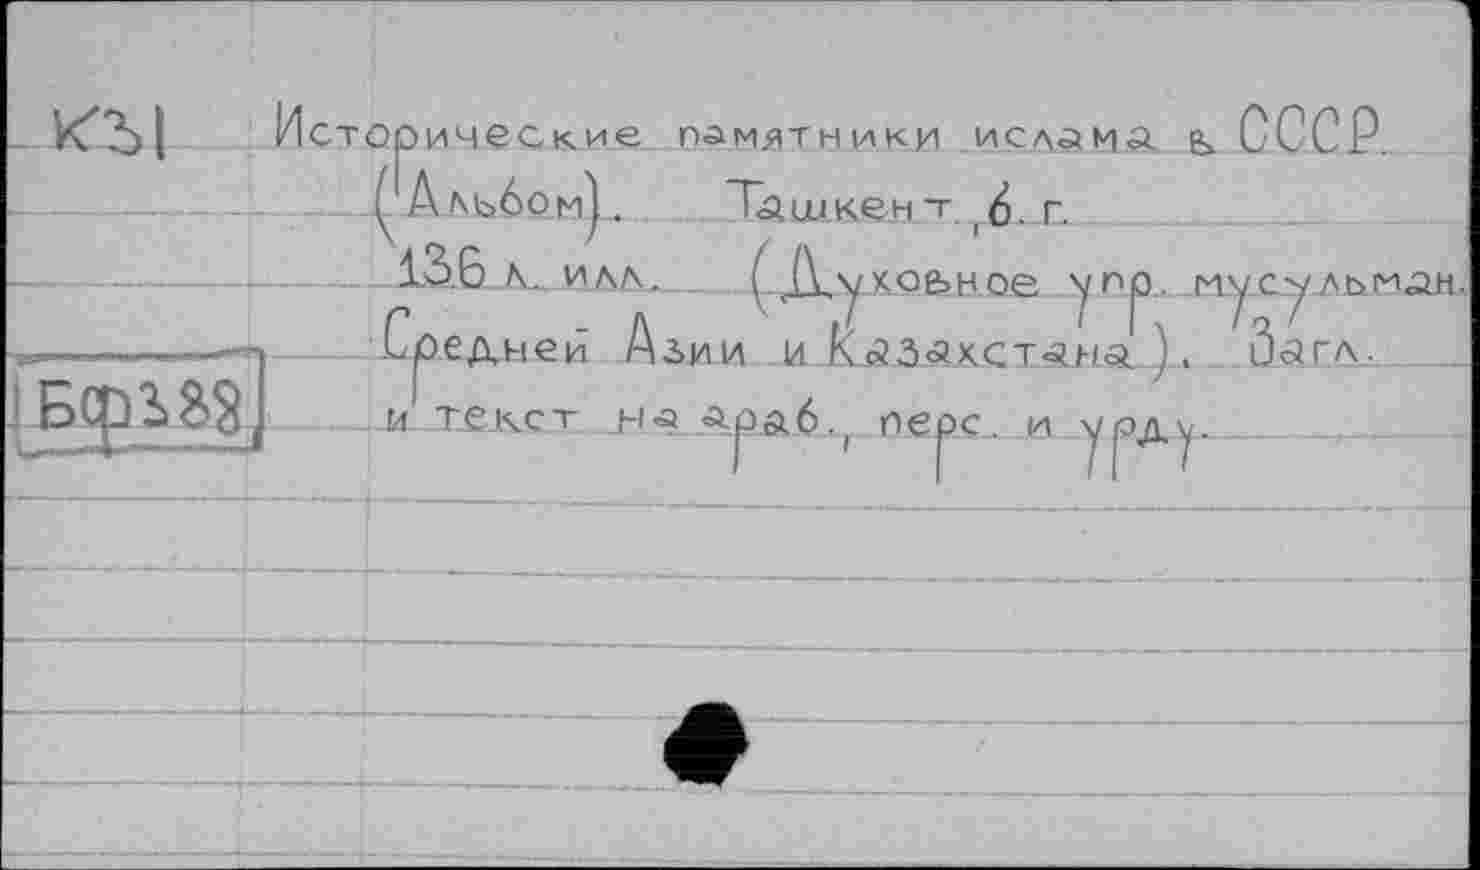 Исторические памятники ислама в СССР.
(Альбом). Ташкент, б. г.
136 л. илл. (Духовное упр. мусульман.
Средней Азии и Казахстана). Загл.
и текст на араб., перс. и урду.